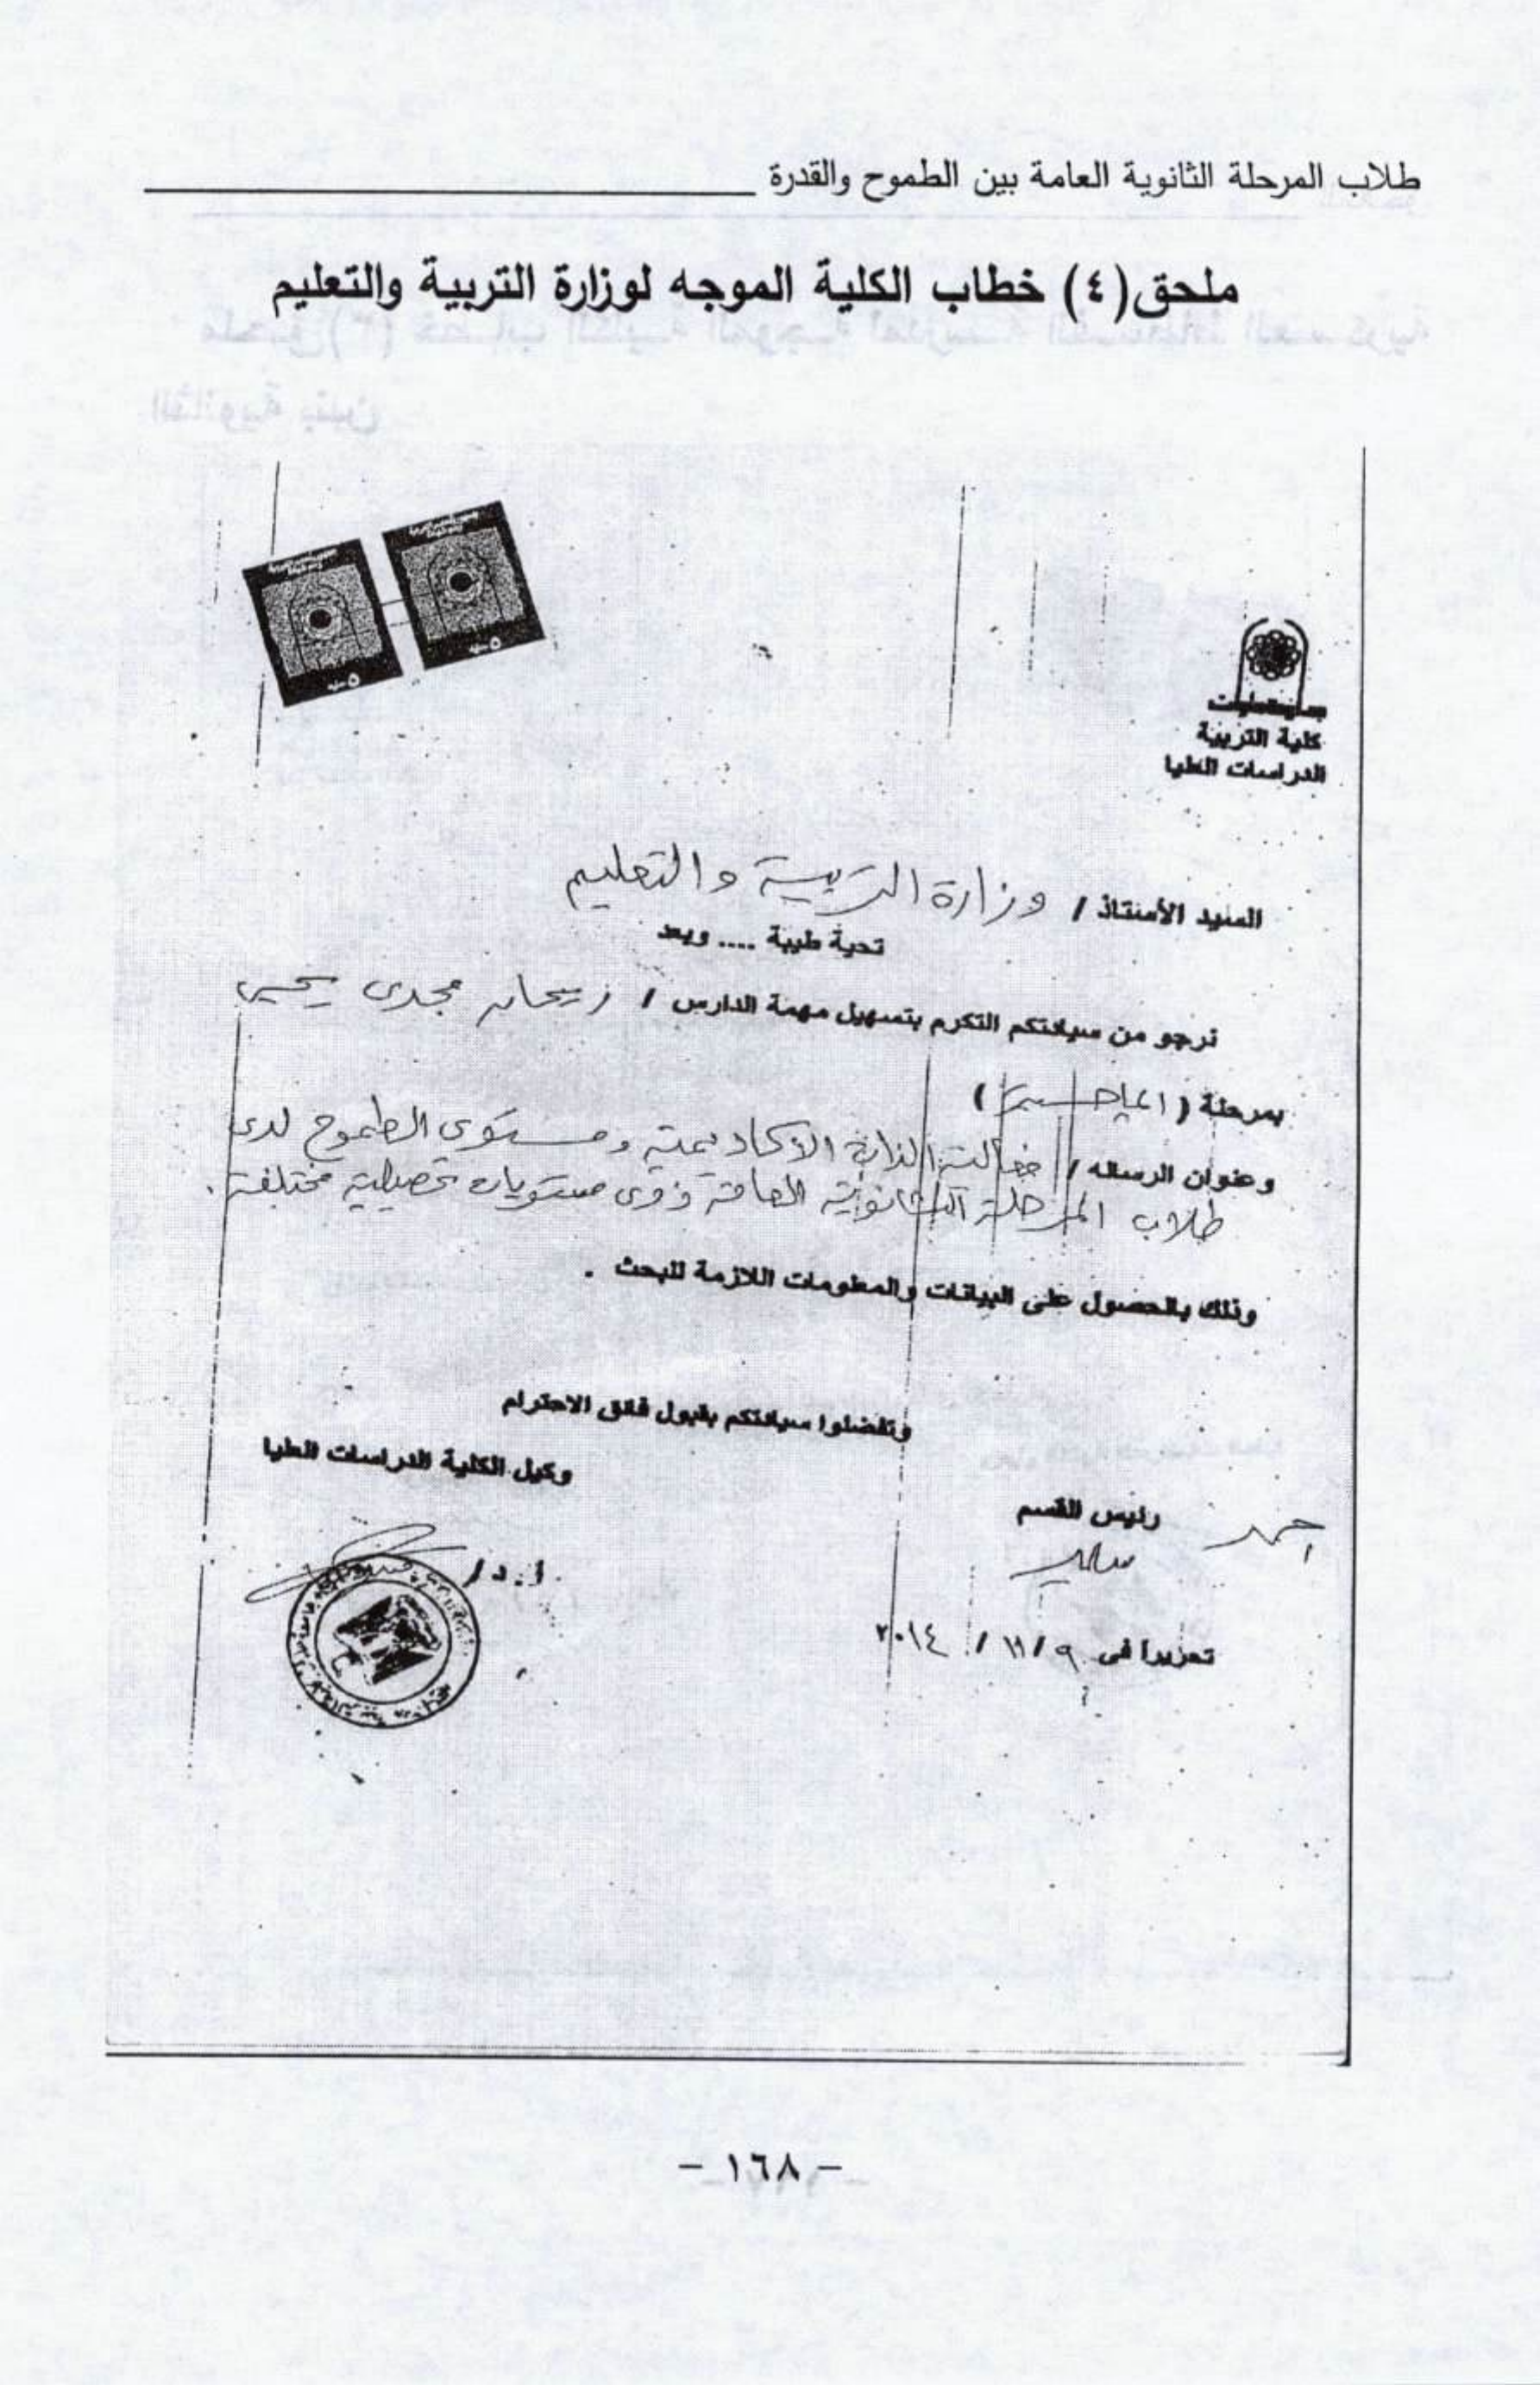 طلاب المرحلة الثانوية العامة بين الطموح والقدرة
ملحق(٤) خطاب الكلية الموجه لوزارة التربية والتعليم
كلية التربية
الدراسات العليا
السيد الأستاذ / وزارة التربية والتعليم
تحية طيبة .... وبعد
نرجو من سيادتكم التكرم بتسهيل مهمة الدارس / مجدى يحيى
بمرحلة ( الماجستير )
وعنوان الرساله / فعالية الذات الأكاديمية ومستوى الطموح لدى
طلاب المرحلة الثانوية العامة ذوى مستويات تحصيلية مختلفة .
وذلك بالحصول على البيانات والمعلومات اللازمة للبحث .
وتفضلوا سيادتكم بقبول فائق الاحترام
وكيل الكلية للدراسات العليا
رئيس القسم
أ . د /
تحريرا فى ٩ / ١١ / ٢٠١٤
- ١٦٨ -